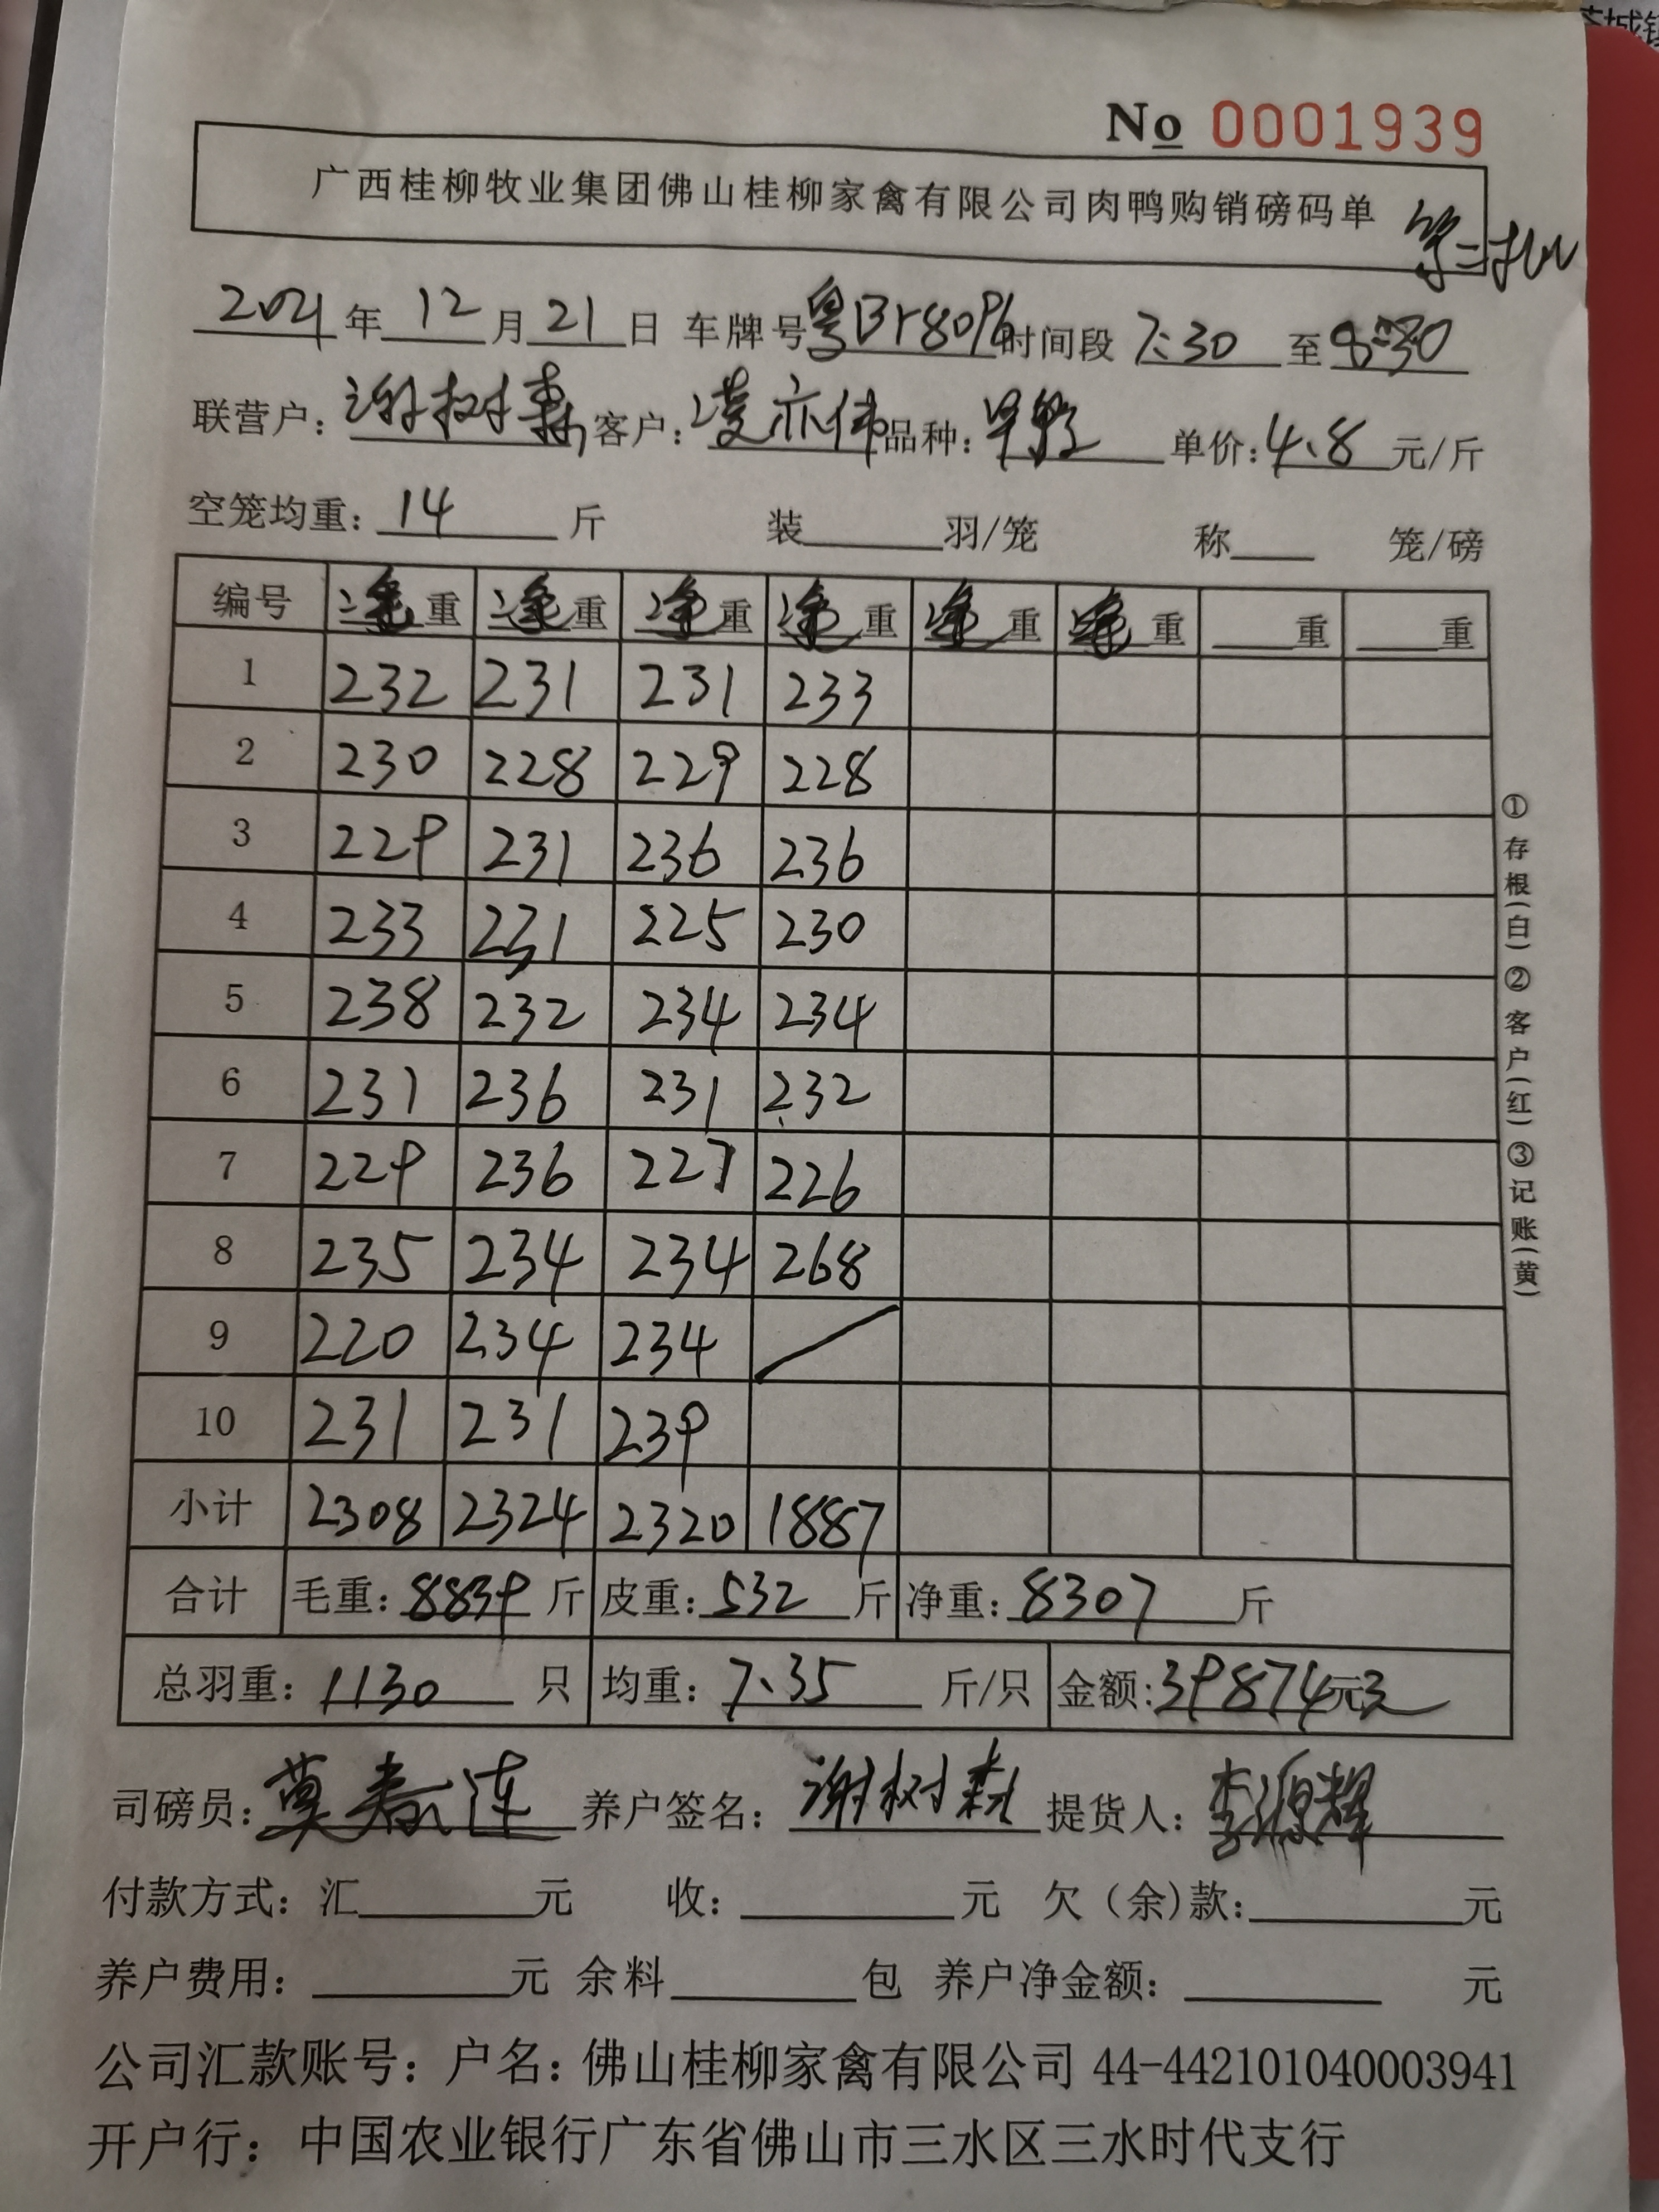 No 0001939
广西桂柳牧业集团佛山桂柳家禽有限公司肉鸭购销磅码单
第二批
2021年12月21日 车牌号粤 时间段 7:30 至 8:30
联营户: 谢树森 客户: 凌亦伟 品种: 单价: 4.8 元/斤
空笼均重: 14 斤 装 羽/笼 称 笼/磅
编号 重 重 重 重 重 重 重 重
1 232 231 231 233
2 230 228 229 228
3 229 231 236 236
4 233 231 225 230
5 238 232 234 234
6 231 236 231 232
7 229 236 227 226
8 235 234 234 268
9 220 234 234
10 231 231 239
小计 2308 2324 2320 1887
合计 毛重: 8839 斤 皮重: 532 斤 净重: 8307 斤
总羽重: 1130 只 均重: 7.35 斤/只 金额: 39874元
司磅员: 莫春连 养户签名: 谢树森 提货人: 李源辉
付款方式: 汇 元 收: 元 欠(余)款: 元
养户费用: 元 余料 包 养户净金额: 元
公司汇款账号: 户名: 佛山桂柳家禽有限公司 44-442101040003941
开户行: 中国农业银行广东省佛山市三水区三水时代支行
①存根(白)②客户(红)③记账(黄)